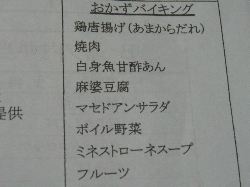 おかずバイキング
鶏唐揚げ(あまからだれ)
焼肉
白身魚甘酢あん
麻婆豆腐
マセドアンサラダ
提供
ボイル野菜
ミネストローネスープ
フルーツ